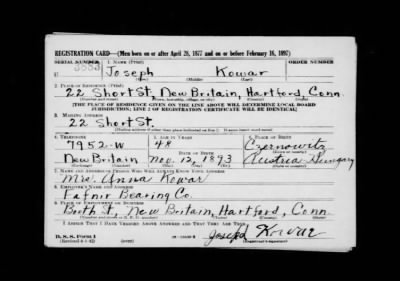 REGISTRATION CARD—(Men born on or after April 28, 1877 and on or before February 16, 1897)
SERIAL NUMBER 1. NAME (Print) ORDER NUMBER
U Joseph Kowar
(First) (Middle) (Last)
2. PLACE OF RESIDENCE (Print)
22 Short St, New Britain, Hartford, Conn.
(Number and street) (Town, township, village, or city) (County) (State)
[THE PLACE OF RESIDENCE GIVEN ON THE LINE ABOVE WILL DETERMINE LOCAL BOARD
JURISDICTION; LINE 2 OF REGISTRATION CERTIFICATE WILL BE IDENTICAL]
3. MAILING ADDRESS
22 Short St.
4. TELEPHONE 5. AGE IN YEARS 6. PLACE OF BIRTH
7952-W 48 Czernowitz
DATE OF BIRTH
New Britain Nov. 12, 1893 Austria Hungary
7. NAME AND ADDRESS OF PERSON WHO WILL ALWAYS KNOW YOUR ADDRESS
Mrs. Anna Kowar
8. EMPLOYER'S NAME AND ADDRESS
Fafnir Bearing Co.
9. PLACE OF EMPLOYMENT OR BUSINESS
Booth St, New Britain, Hartford, Conn.
I AFFIRM THAT I HAVE VERIFIED ABOVE ANSWERS AND THAT THEY ARE TRUE.
D. S. S. Form 1
(Revised 4-1-42) Joseph Kowar